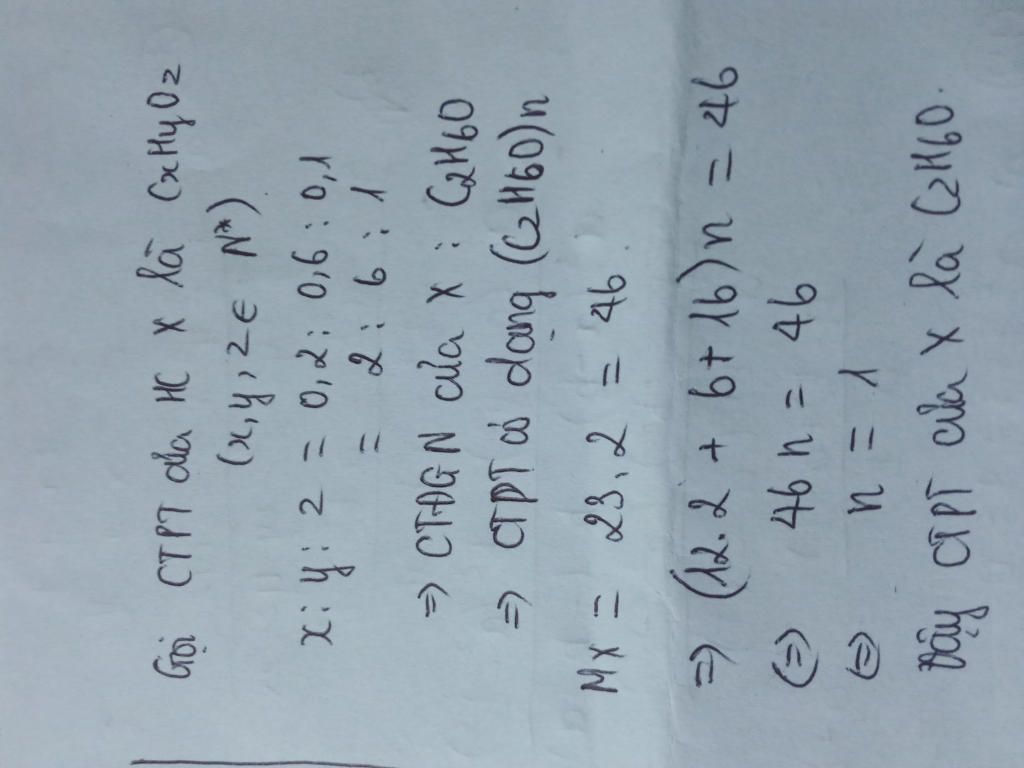 Gọi CTPT của HC X là CxHyOz
(x, y, z ∈ N*)
x : y : z = 0,2 : 0,6 : 0,1
= 2 : 6 : 1
=> CTĐGN của X : C2H6O
=> CTPT có dạng (C2H6O)n
Mx = 23.2 = 46
=> (12.2 + 6 + 16) n = 46
(=) 46 n = 46
(=) n = 1
Vậy CTPT của X là C2H6O.